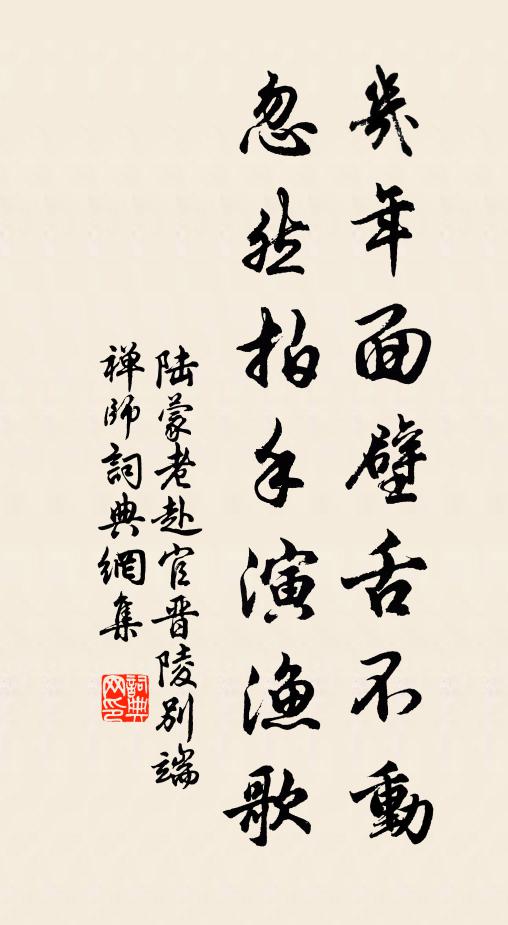 幾年面壁舌不動
忽然拍手演漁歌
陸蒙老赴官晉陵別端
禪師詞典網集
詞典
网印